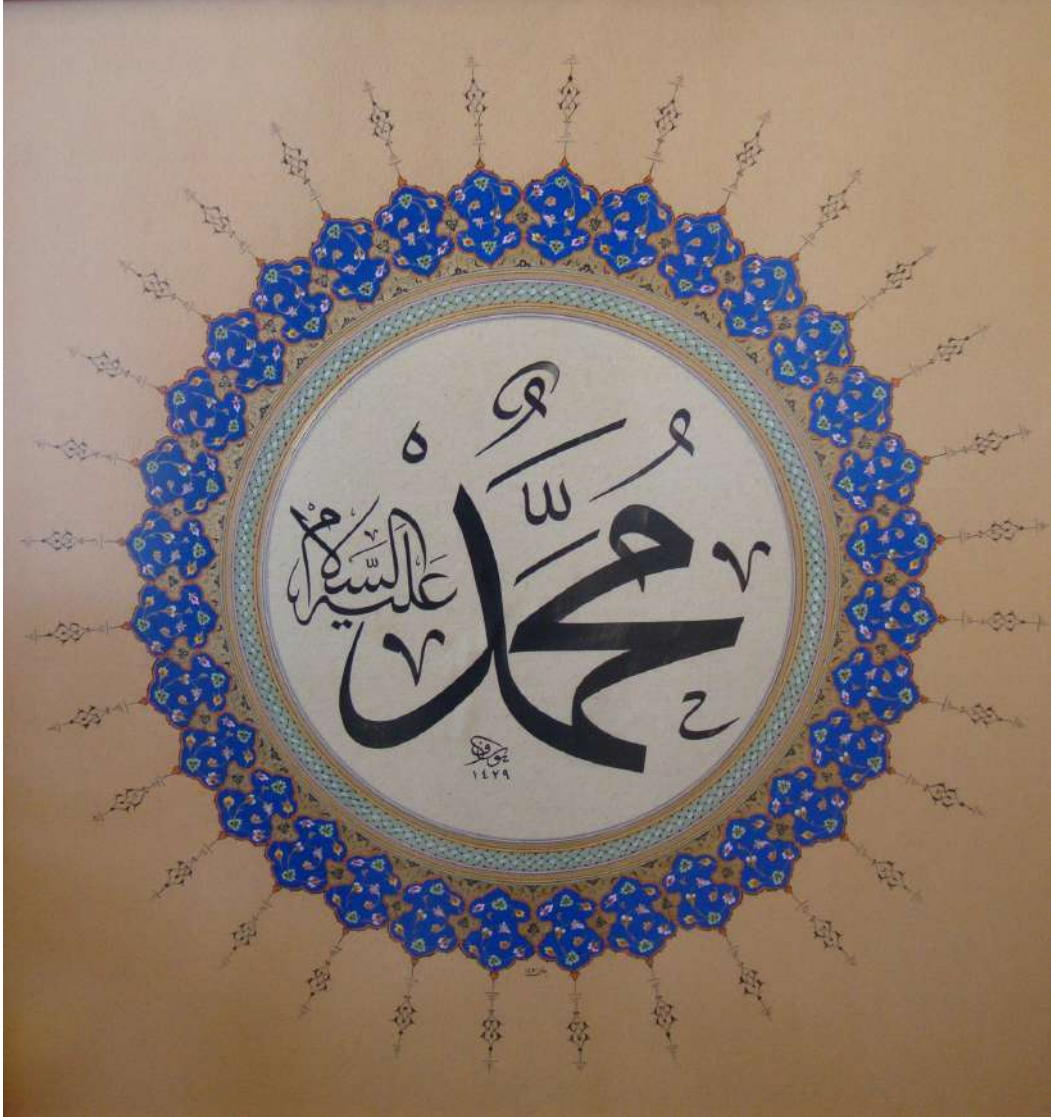 مُحَمَّدٌ
عَلَيْهِ السَّلَام
١٤٢٩